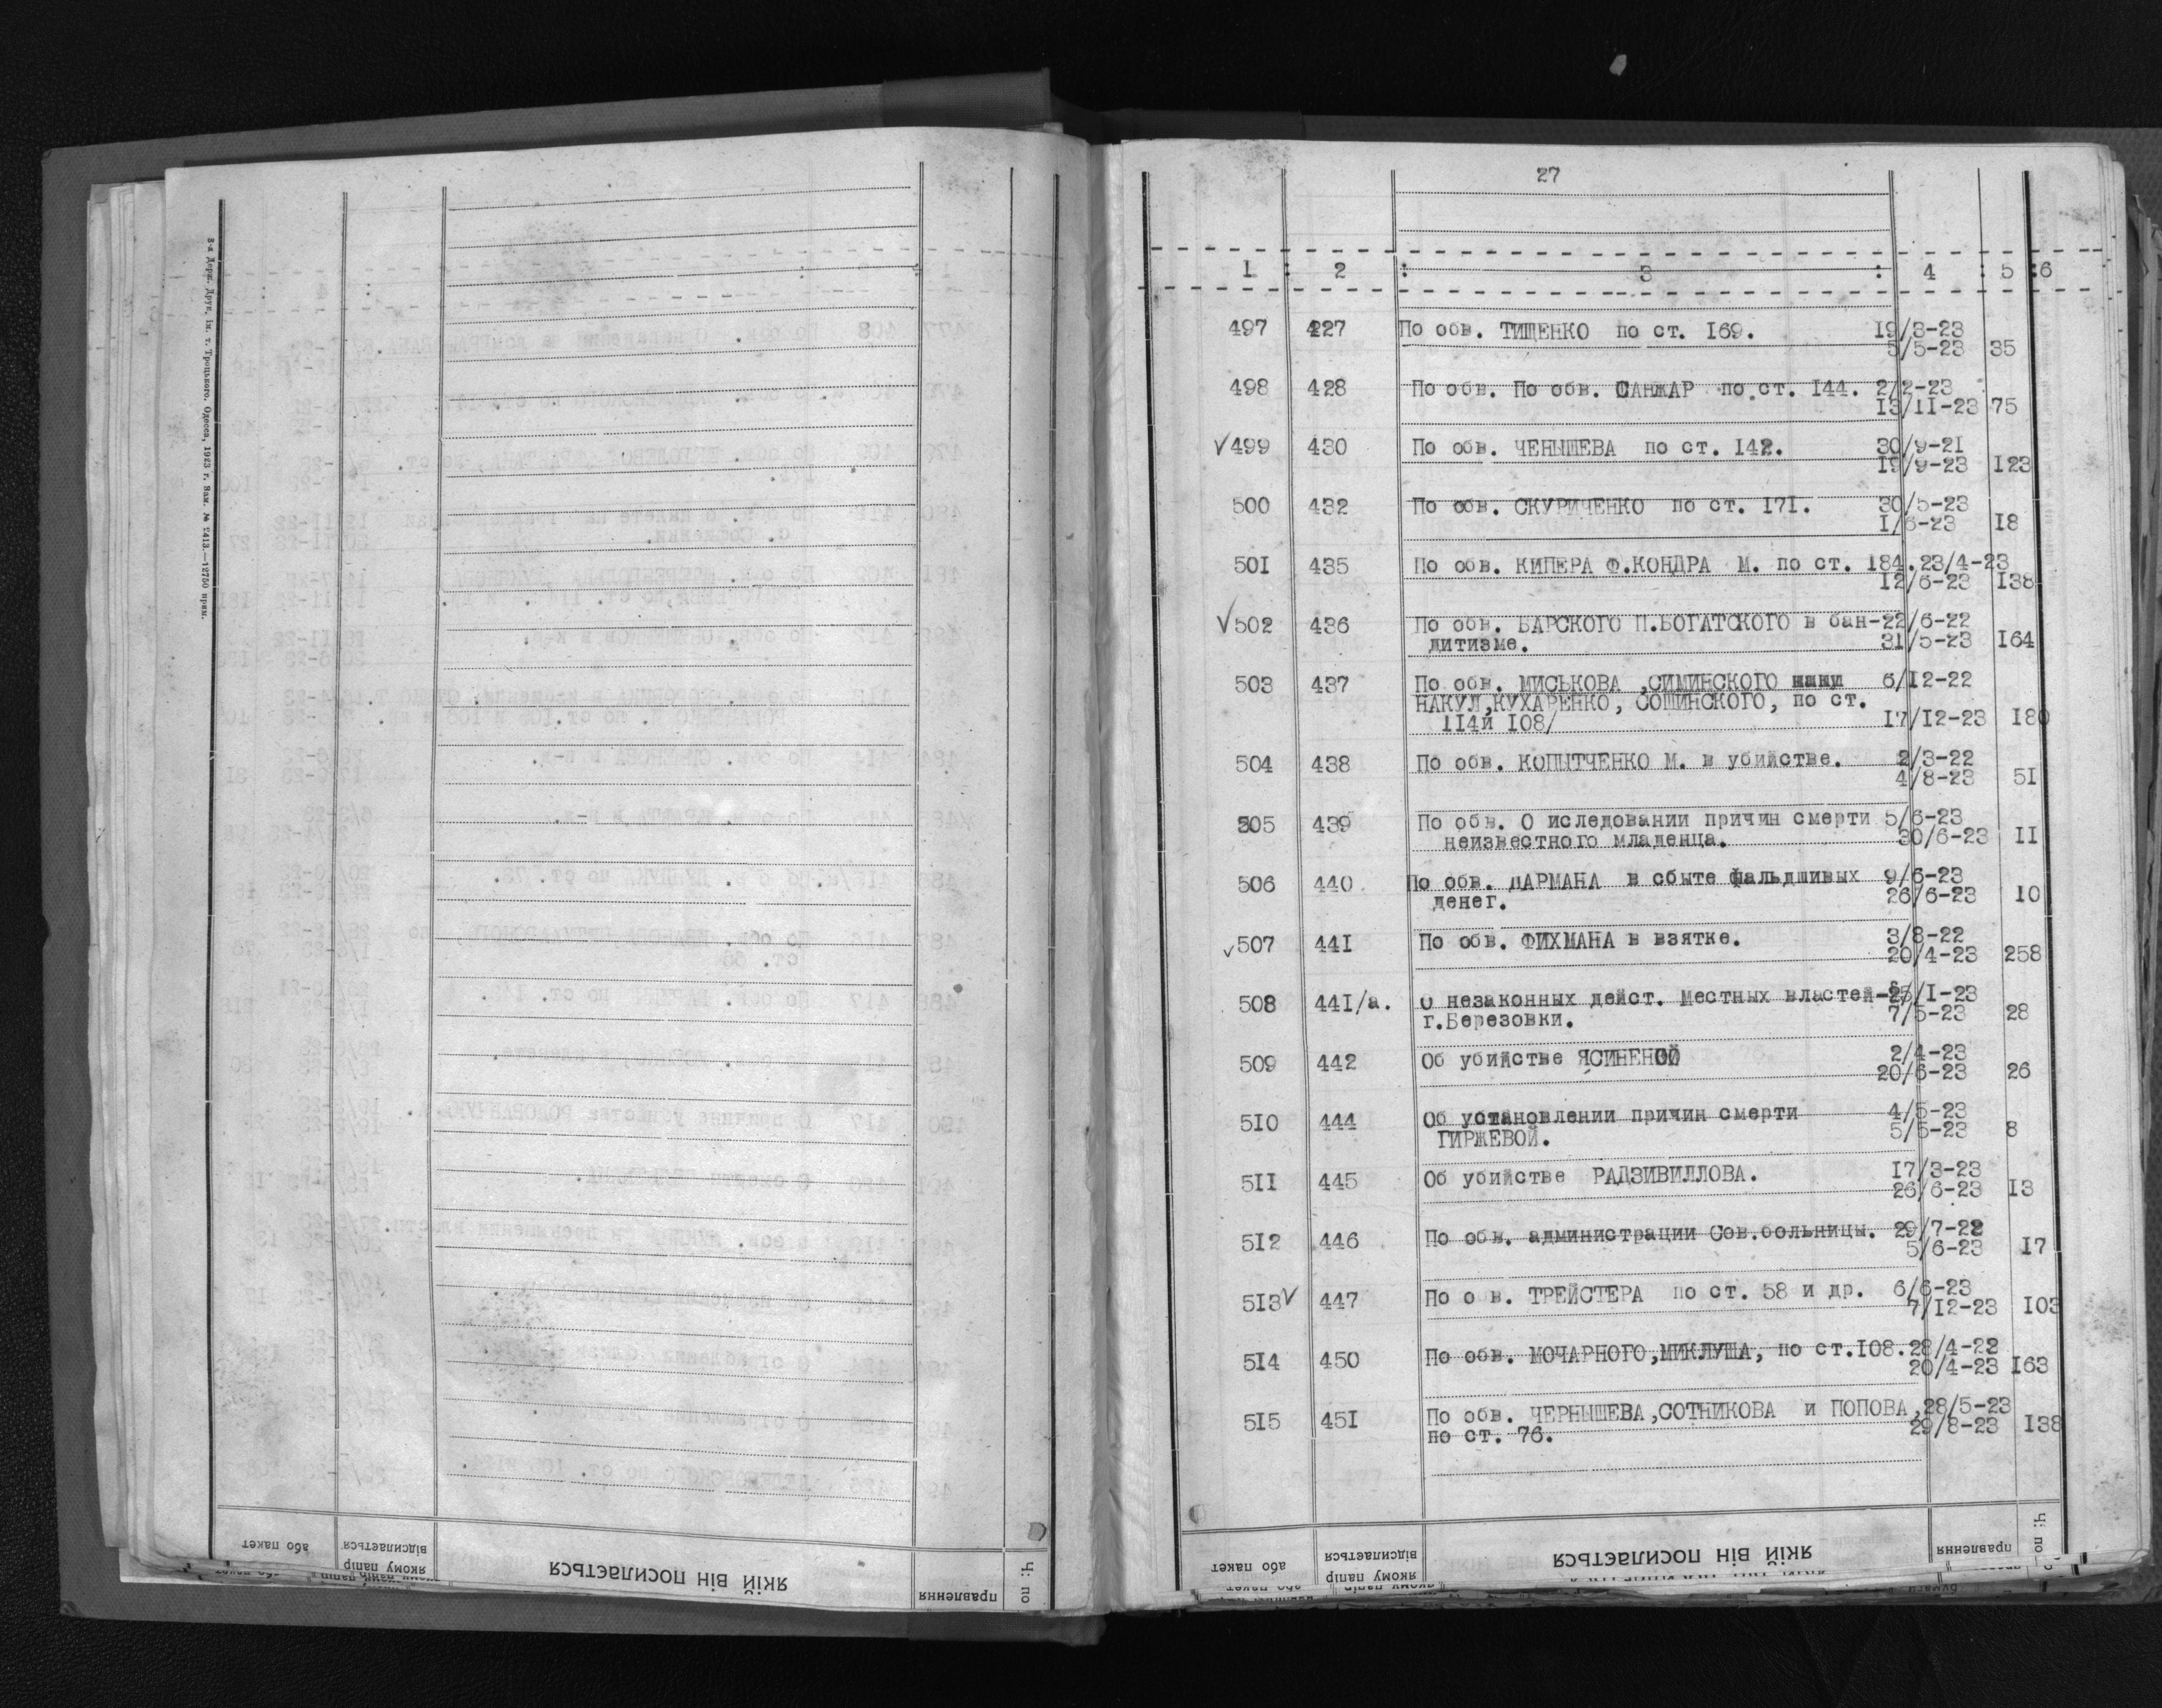 3-я Держ. Друк. ім. т. Троцького. Одесса, 1923 г. Зам. № 2413.—12750 прим.
або пакет
якому папір відсилається
якій він посилається
правлення
Ч: по
27
1 : 2 : 3 : 4 : 5 :6
497 427 По обв. ТИЩЕНКО по ст. 169. 19/3-23
5/5-23 35
498 428 По обв. По обв. САНЖАР по ст. 144. 2/2-23
13/11-23 75
✓499 430 По обв. ЧЕНЫШЕВА по ст. 142. 30/9-21
19/9-23 123
500 432 По обв. СКУРИЧЕНКО по ст. 171. 30/5-23
1/6-23 18
501 435 По обв. КИПЕРА Ф.КОНДРА М. по ст. 184.23/4-23
12/6-23 138
✓502 436 По обв. БАРСКОГО П.БОГАТСКОГО в бан-22/6-22
дитизме. 31/5-23 164
503 437 По обв. МИСЬКОВА ,СИМИНСКОГО 6/12-22
НАКУЛ,КУХАРЕНКО, СОШИНСКОГО, по ст.
114й 108/ 17/12-23 180
504 438 По обв. КОПЫТЧЕНКО М. в убийстве. 2/3-22
4/8-23 51
505 439 По обв. О иследовании причин смерти 5/6-23
неизвестного младенца. 30/6-23 11
506 440 По обв. ДАРМАНА в сбыте фальдшивых 9/6-23
денег. 26/6-23 10
✓507 441 По обв. ФИХМАНА в взятке. 3/8-22
20/4-23 258
508 441/а. О незаконных дейст. местных властей-25/1-23
г.Березовки. 7/5-23 28
509 442 Об убийстве ЯСИНЕНОЙ 2/4-23
20/6-23 26
510 444 Об установлении причин смерти 4/5-23
ГИРЖЕВОЙ. 5/5-23 8
511 445 Об убийстве РАДЗИВИЛЛОВА. 17/3-23
26/6-23 13
512 446 По обв. администрации Сов.больницы. 29/7-22
5/6-23 17
513✓ 447 По о в. ТРЕЙСТЕРА по ст. 58 и др. 6/6-23
7/12-23 103
514 450 По обв. МОЧАРНОГО,МИКЛУША, по ст.108.28/4-22
20/4-23 163
515 451 По обв. ЧЕРНЫШЕВА,СОТНИКОВА и ПОПОВА,28/5-23
по ст. 76. 29/8-23 138
або пакет
якому папір відсилається
якій він посилається
правлення
Ч: по